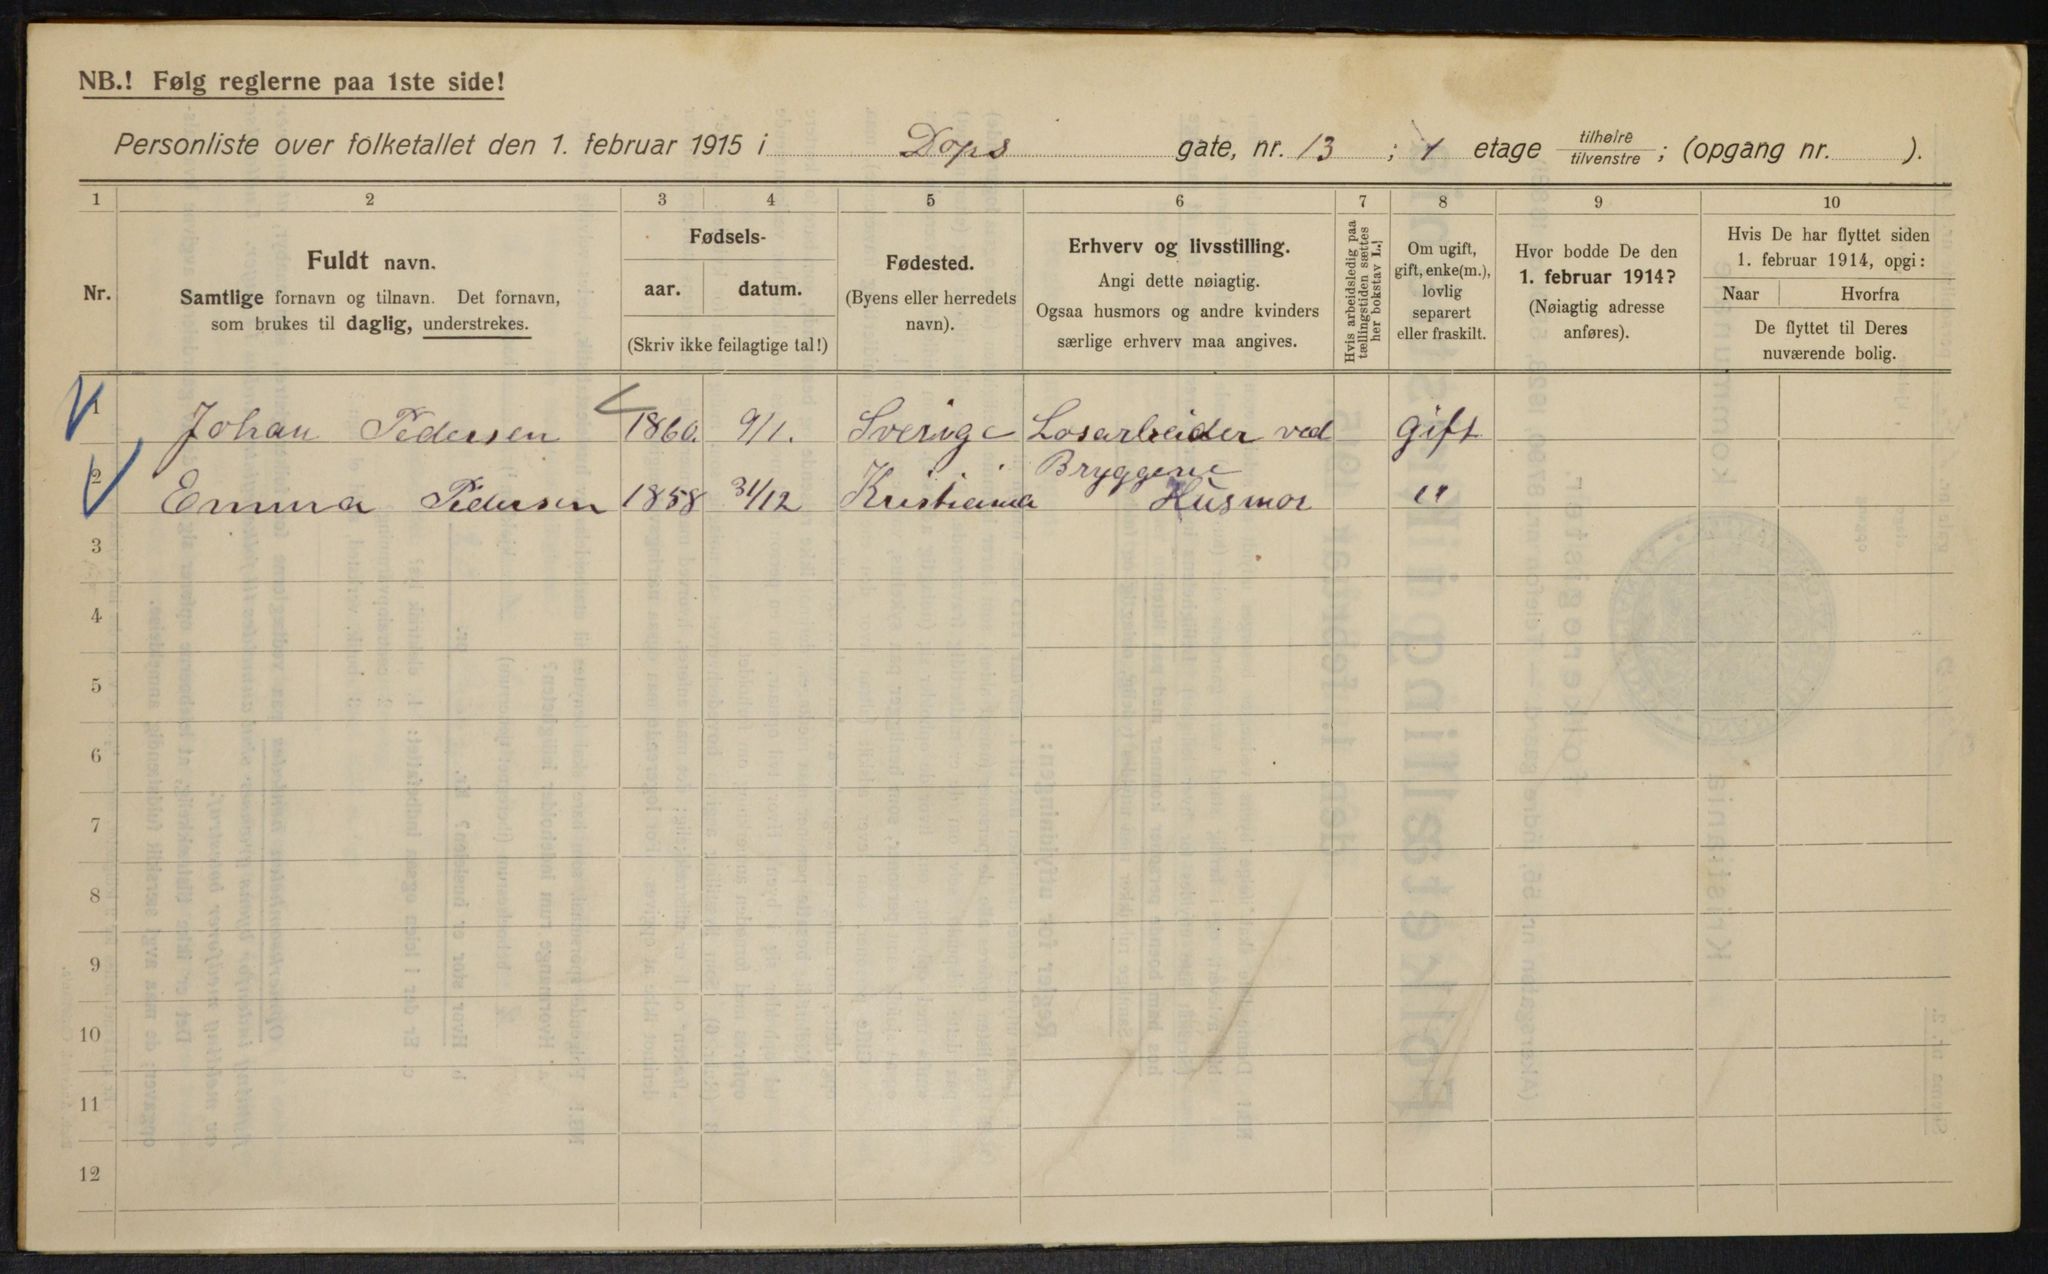 NB.! Følg reglerne paa 1ste side!
Personliste over folketallet den 1. februar 1915 i Dops gate, nr. 13 ; 1 etage tilhøire / tilvenstre ; (opgang nr. ).
1 2 3 4 5 6 7 8 9 10
Nr.
Fuldt navn.
Samtlige fornavn og tilnavn. Det fornavn,
som brukes til daglig, understrekes.
Fødsels-
aar. datum.
(Skriv ikke feilagtige tal!)
Fødested.
(Byens eller herredets
navn).
Erhverv og livsstilling.
Angi dette nøiagtig.
Ogsaa husmors og andre kvinders
særlige erhverv maa angives.
Hvis arbeidsledig paa
tællingstiden sættes
her bokstav L.)
Om ugift,
gift, enke(m.),
lovlig
separert
eller fraskilt.
Hvor bodde De den
1. februar 1914?
(Nøiagtig adresse
anføres).
Hvis De har flyttet siden
1. februar 1914, opgi:
Naar Hvorfra
De flyttet til Deres
nuværende bolig.
1 Johan Pedersen 1860. 9/1. Sverige Losarbeider ved Bryggene gift
2 Emma Pedersen 1858 31/12 Kristiania Husmor "
3
4
5
6
7
8
9
10
11
12